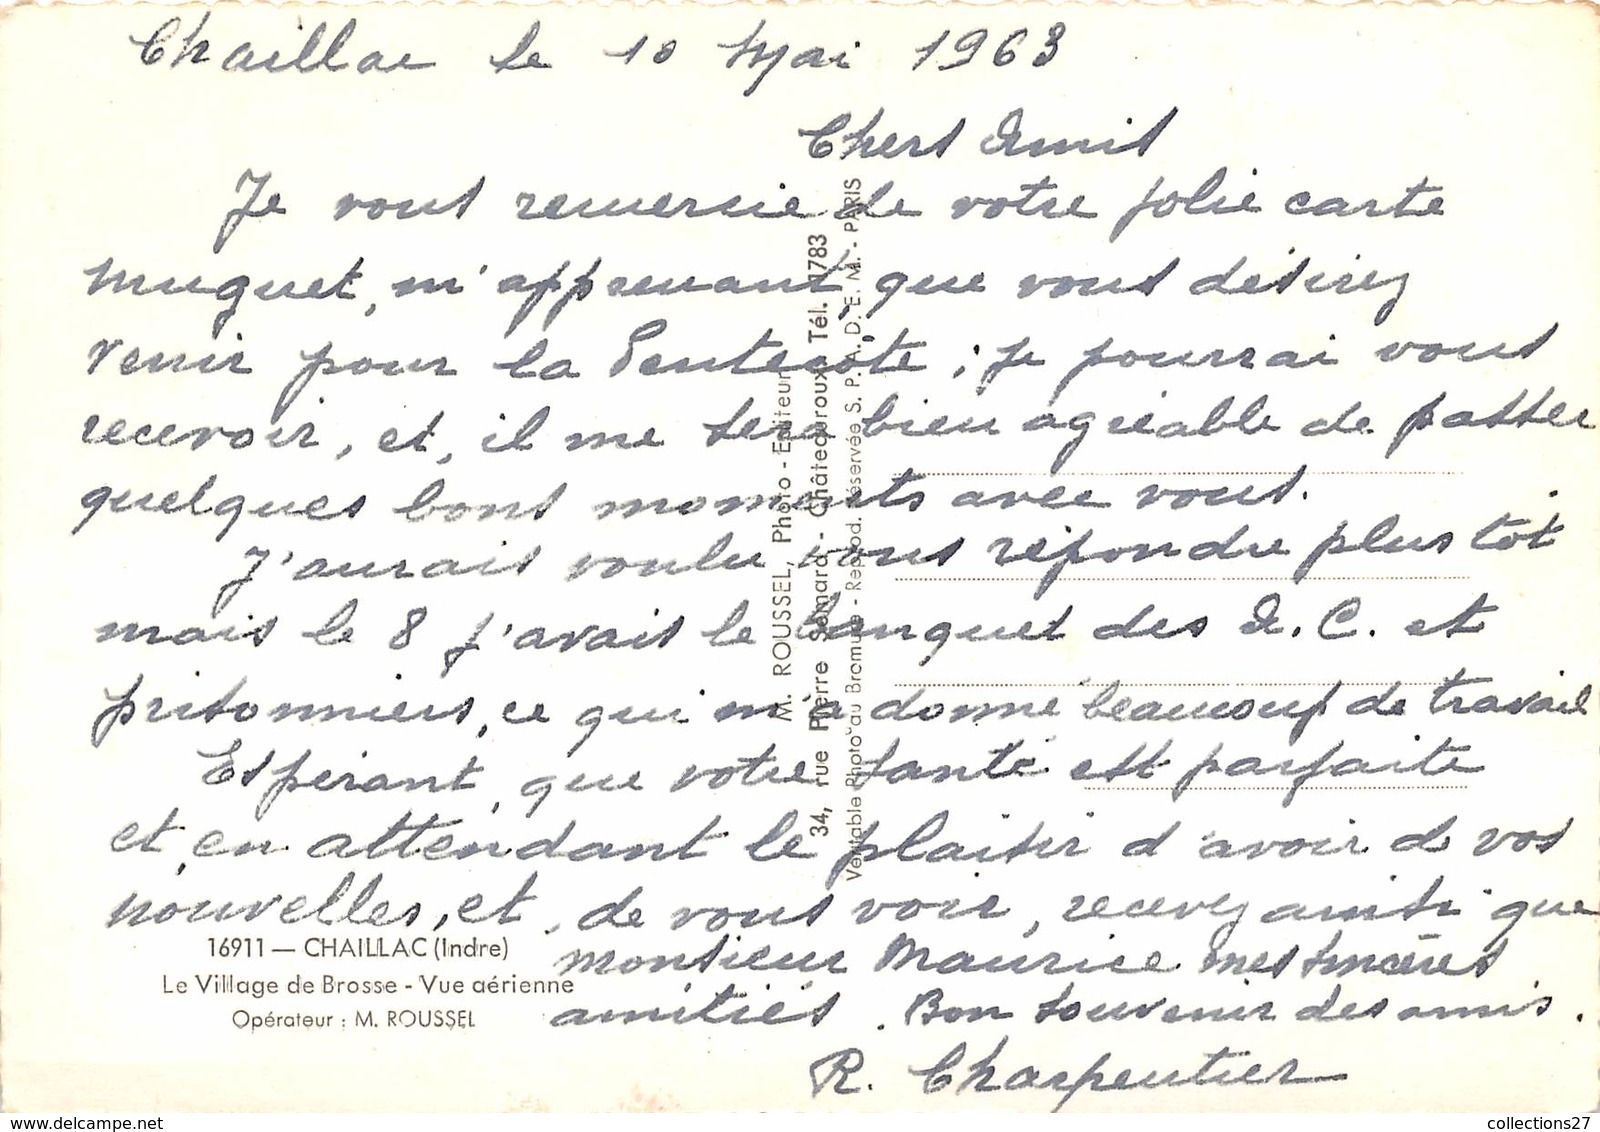 Chaillac le 10 Mai 1963
Chers Amis
Je vous remercie de votre jolie carte
muguet, m'apprenant que vous désirez
venir pour la Pentecôte ; je pourrai vous
recevoir, et, il me sera bien agréable de passer
quelques bons moments avec vous.
J'aurais voulu vous répondre plus tôt
mais le 8 j'avais le banquet des A.C. et
prisonniers, ce qui m'a donné beaucoup de travail
Espérant, que votre santé est parfaite
et, en attendant le plaisir d'avoir de vos
nouvelles, et, de vous voir, recevez ainsi que
monsieur Maurice mes sincères
amitiés. Bon souvenir des amis.
R. Charpentier
16911 — CHAILLAC (Indre)
Le Village de Brosse - Vue aérienne
Opérateur : M. ROUSSEL
M. ROUSSEL, Photo - Editeur
34, rue Pierre Sémard - Châteauroux - Tél. 1783
Véritable Photo au Bromure - Reprod. réservée S. P. A. D. E. M. - PARIS
delcampe.net
collections27